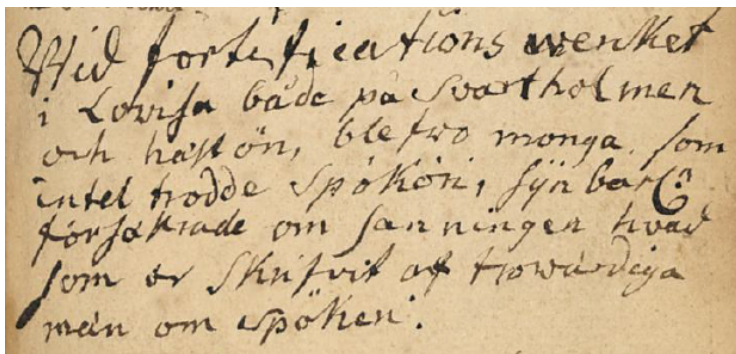 Wid fortifications wercket
i Lovisa både på Svartholmen
och hästön, blefwo monga som
intel trodde Spöken, synbarl:n
försäkrade om sanningen hvad
som er Skrifvit af trowärdiga
män om spöken.